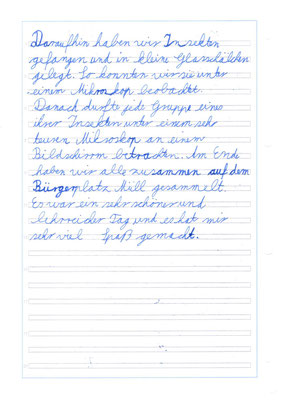 Daraufhin haben wir Insekten
gefangen und in kleine Glasschälchen
gelegt. So konnten wir sie unter
einem Mikroskop beobachtet.
Danach durfte jede Gruppe eines
ihrer Insekten unter einem sehr
teuren Mikroskop an einem
Bildschirm betrachten. Am Ende
haben wir alle zusammen auf dem
Bürgerplatz Müll gesammelt.
Es war ein sehr schöner und
lehrreicher Tag und es hat mir
sehr viel Spaß gemacht.